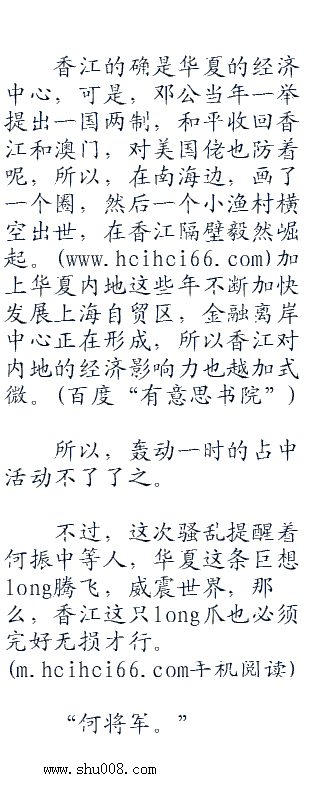 香江的确是华夏的经济
中心，可是，邓公当年一举
提出一国两制，和平收回香
江和澳门，对美国佬也防着
呢，所以，在南海边，画了
一个圈，然后一个小渔村横
空出世，在香江隔壁毅然崛
起。(www.hcihci66.com)加
上华夏内地这些年不断加快
发展上海自贸区，金融离岸
中心正在形成，所以香江对
内地的经济影响力也越加式
微。(百度“有意思书院”)
所以，轰动一时的占中
活动不了了之。
不过，这次骚乱提醒着
何振中等人，华夏这条巨想
long腾飞，威震世界，那
么，香江这只long爪也必须
完好无损才行。
(m.hcihci66.com手机阅读)
“何将军。”
www.shu008.com